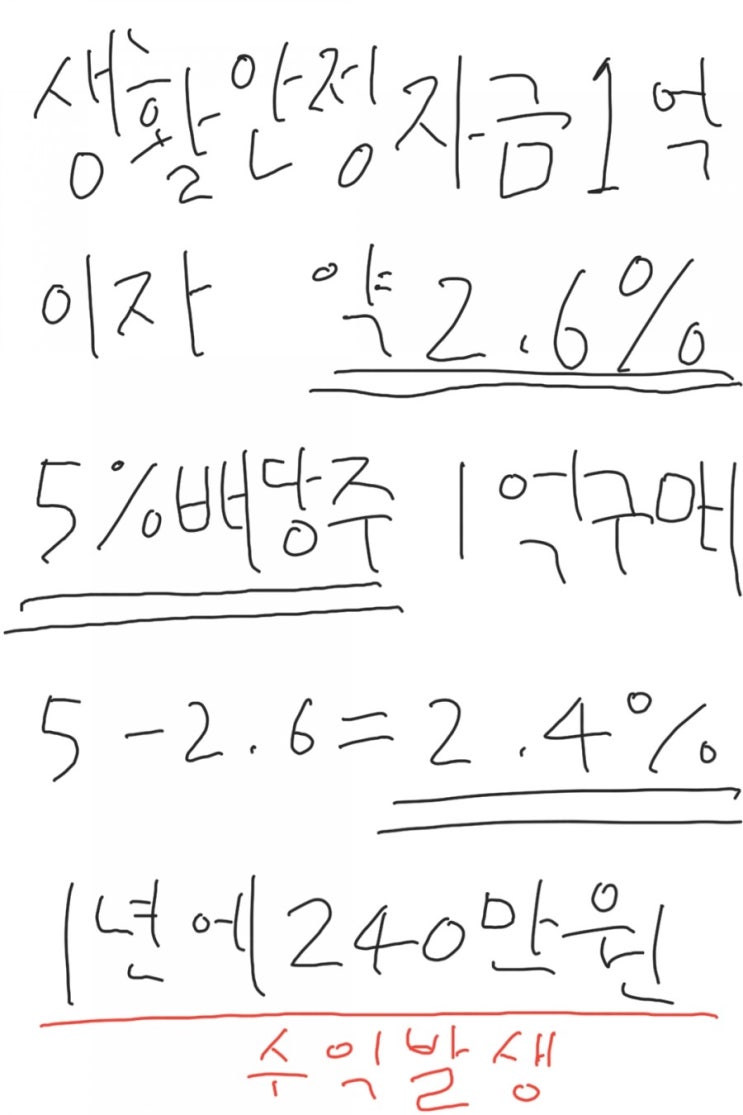 생활안정자금1억
이자 약2.6%
5%배당주 1억구매
5-2.6=2.4%
1년에240만원
수익발생